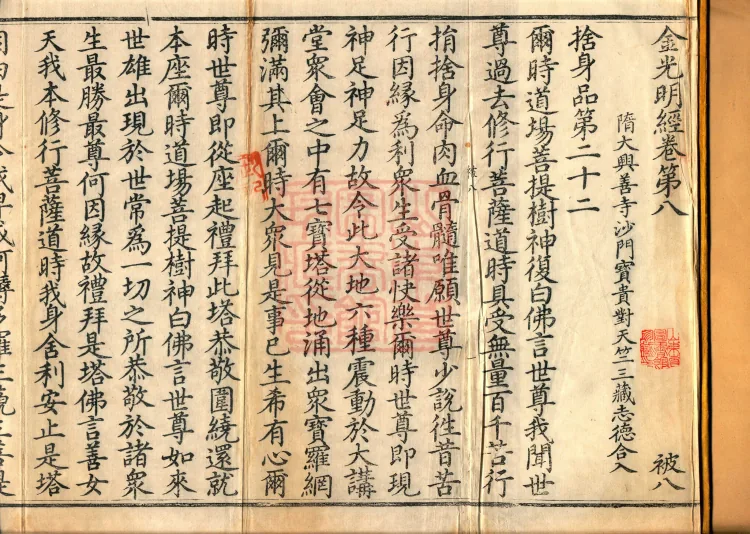 金光明經卷第八 被八
隋大興善寺沙門寶貴對天竺三藏志德合入
捨身品第二十二
爾時道場菩提樹神復白佛言世尊我聞世
尊過去修行菩薩道時具受無量百千苦行
捐捨身命肉血骨髓唯願世尊少說往昔苦
行因緣為利眾生受諸快樂爾時世尊即現
神足神足力故令此大地六種震動於大講
堂眾會之中有七寶塔從地涌出眾寶羅網
彌滿其上爾時大眾見是事已生希有心爾
時世尊即從座起禮拜此塔恭敬圍繞還就
本座爾時道場菩提樹神白佛言世尊如來
世雄出現於世常為一切之所恭敬於諸眾
生最勝最尊何因緣故禮拜是塔佛言善女
天我本修行菩薩道時我身舍利安止是塔